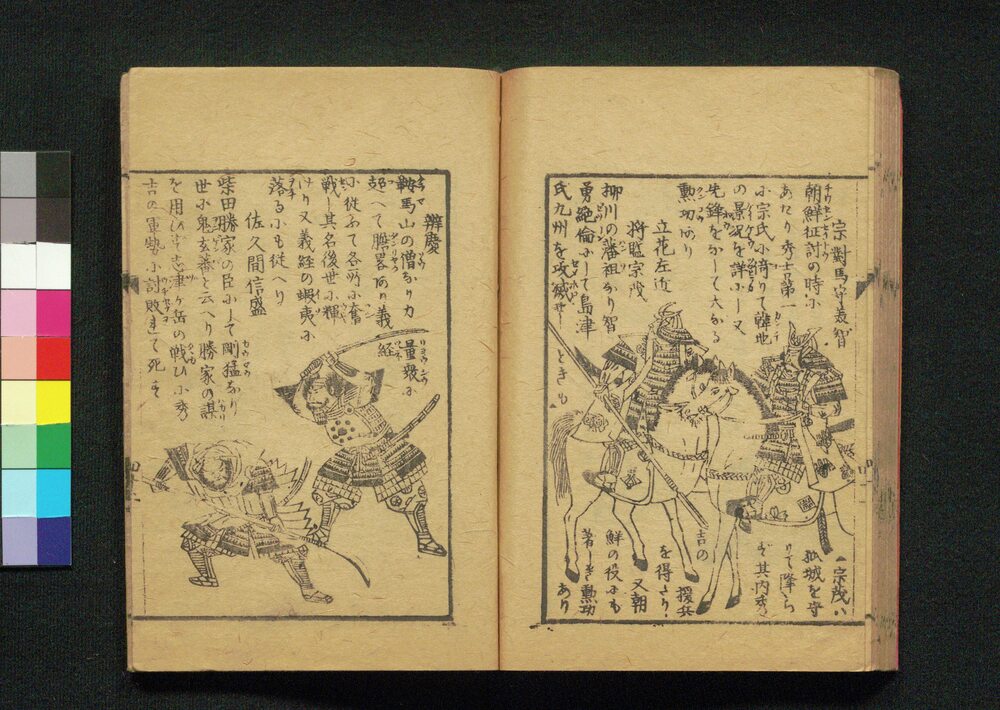 宗對馬守義智
朝鮮征討の時に
あたり秀吉第一
に宗氏に倚りて韓地
の景况を詳にし又
先鋒をかして大なる
勲功あり
立花左近
将監宗茂
柳川の藩祖なり智
勇絶倫にして島津
氏九州を攻滅せしときも
宗茂ハ
孤城を守
りて降ら
ず其内秀
吉の援兵
を得たり又朝
鮮の役にも
著しき勲功
あり
辨慶
鞍馬山の僧なり力量衆に
超へて膽畧あり義経
に従ふて各所に奮
戦し其名後世に輝
けり又義経の蝦夷に
落るにも従へり
佐久間信盛
柴田勝家の臣にして剛猛なり
世に鬼玄蕃と云へり勝家の謀
を用ひず志津ヶ岳の戦ひに秀
吉の軍勢に討敗れて死す